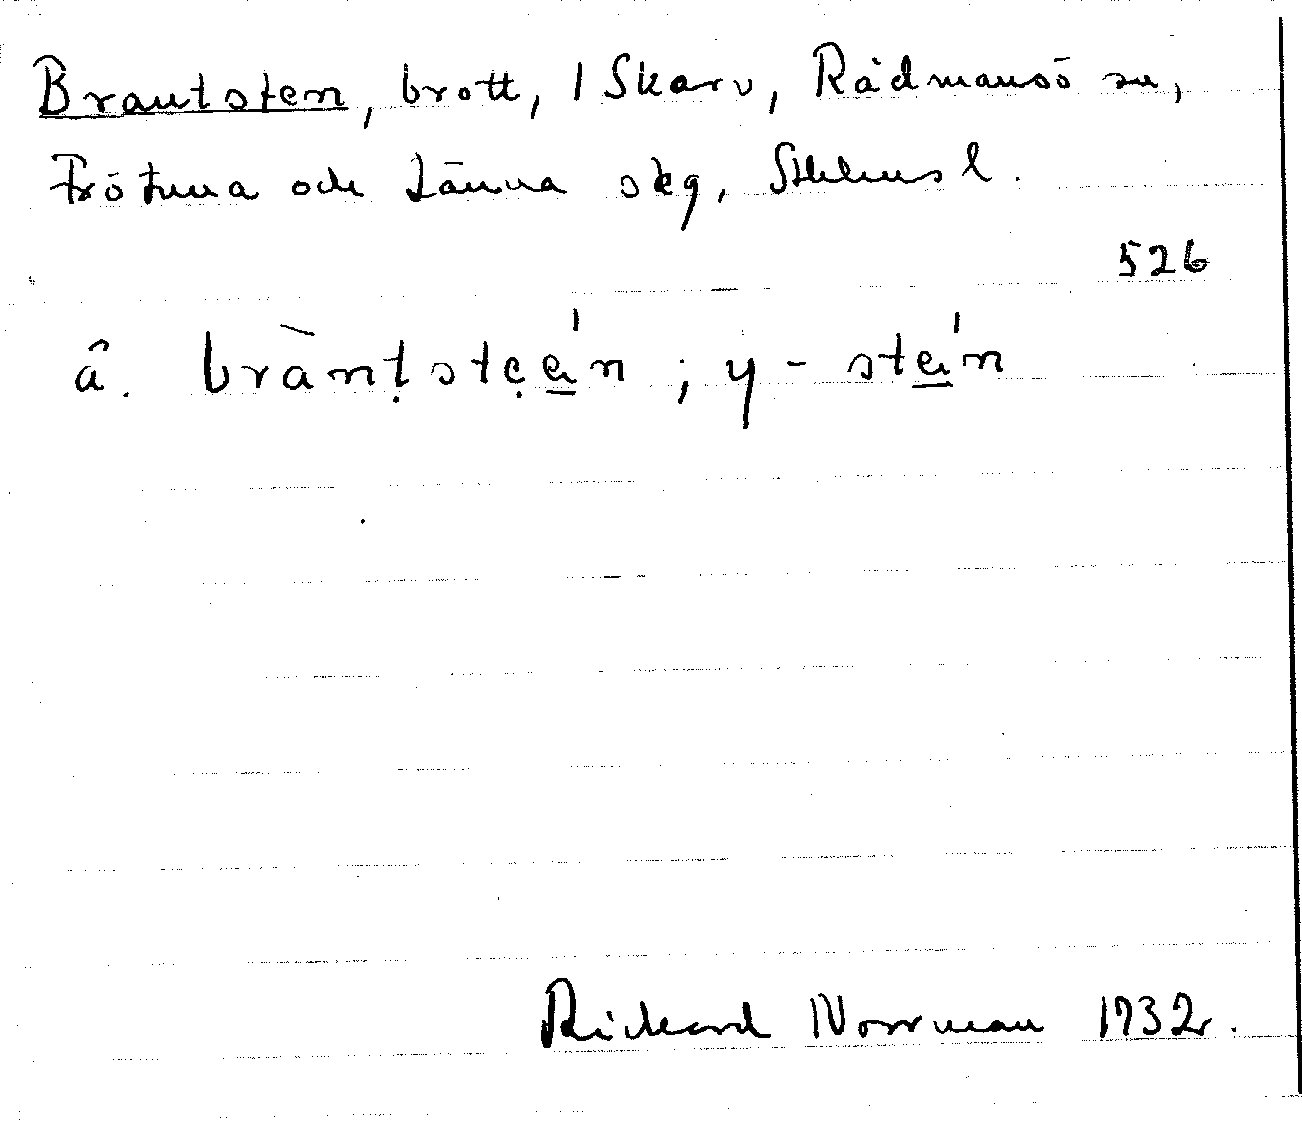 Brantsten, brott, 1 Skarv, Rådmansö sn,
Frötuna och Länna skg, Sthlms l.
526
â. bràntsteen; y - sten
Rickard Norrman 1932.